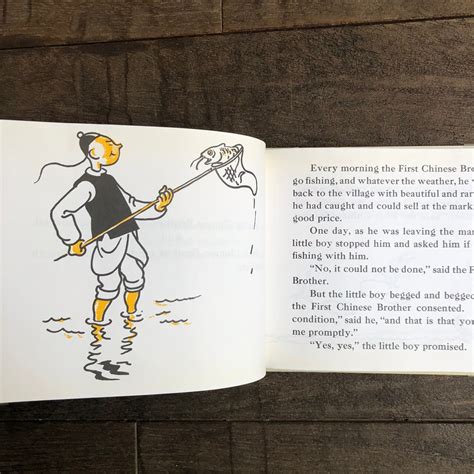 Every morning the First Chinese Bro
go fishing, and whatever the weather, he
back to the village with beautiful and rar
he had caught and could sell at the mark
good price.
One day, as he was leaving the mar
little boy stopped him and asked him if
fishing with him.
“No, it could not be done,” said the F
Brother.
But the little boy begged and begged
the First Chinese Brother consented.
condition,” said he, “and that is that you
me promptly.”
“Yes, yes,” the little boy promised.